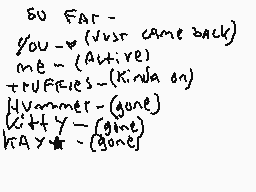 SO FAr -
YOU - ♥ (JUST cAME BACK)
me - (Active)
trUFFIES - (Kinda on)
HUmmer - (gone)
KittY - (gone)
KAY★ - (gone)